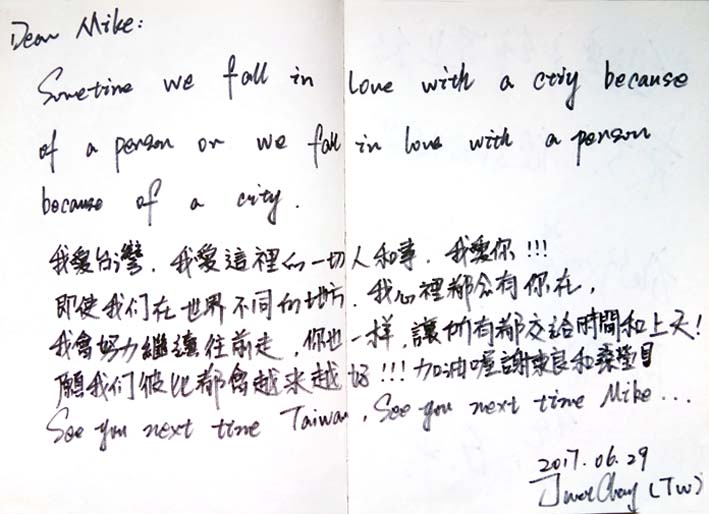 Dear Mike:
Sometime we fall in love with a city because
of a person or we fall in love with a person
because of a city.
我愛台灣，我愛這裡的一切人和事，我愛你!!!
即使我们在世界不同的地方，我心裡都会有你在，
我會努力繼續往前走，你也一樣，讓所有都交給時間和上天!
願我们彼此都會越來越好!!!加油喔謝東良和
See you next time Taiwan, See you next time Mike...
2017.06.29
(TW)